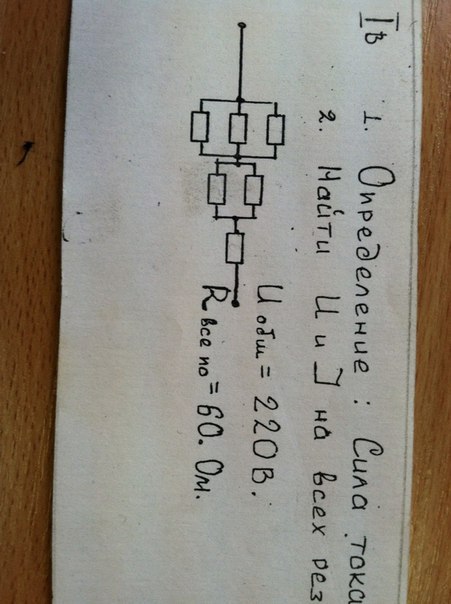 I в
1. Определение: Сила тока
2. Найти U и J на всех рез
U общ = 220В.
R все по = 60. Ом.